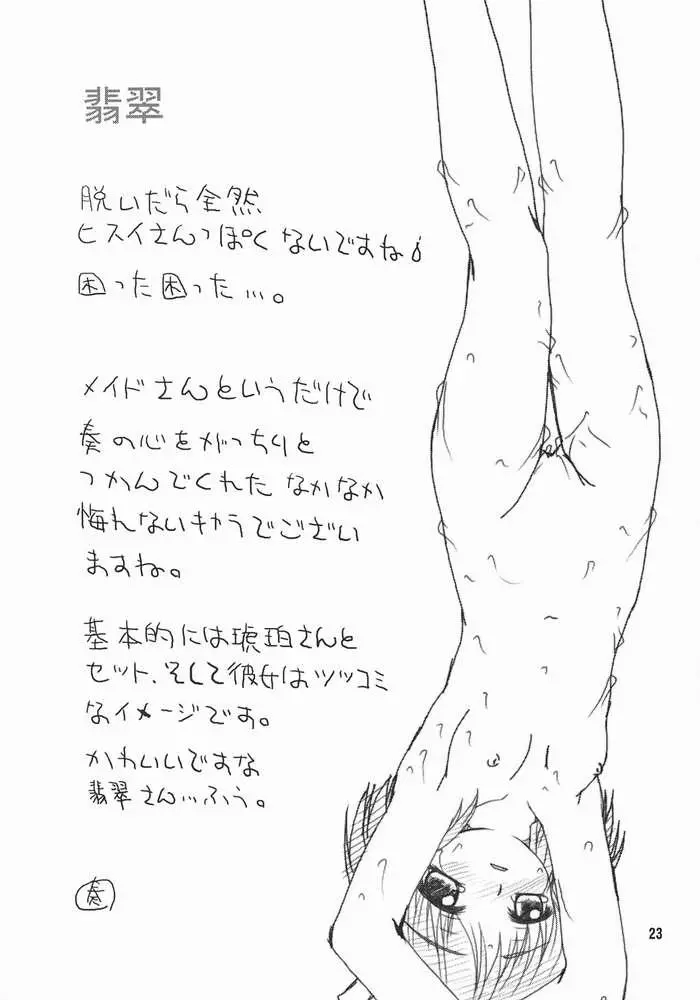 翡翠
脱いだら全然
ヒスイさんっぽくないですね
困った困った…。
メイドさんというだけで
奏の心をがっちりと
つかんでくれたなかなか
悔れないキャラでござい
ますね。
基本的には琥珀さんと
セット、そして彼女はツッコミ
なイメージです。
かわいいですな
翡翠さん…ふう。
奏
23